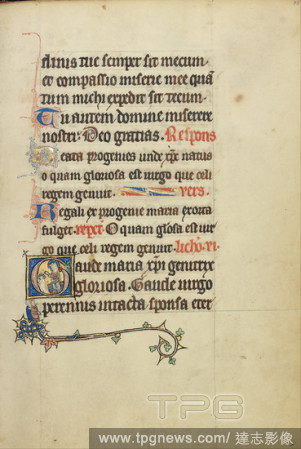 amus tue semper sit mecum
et compassio miserie mee quã
tum michi expedit sit tecum.
Tu autem domine miserere
nostri. Deo gratias. Respons
Beata progenies unde xpc natus
o quam gloriosa est uirgo que celi
regem genuit. vers.
Regali ex progenie maria exorta
fulget. repet. O quam glosa est uir
go que celi regem genuit.
Gaude maria xpi genitrix
gloriosa. Gaude uirgo
perennis intacta sponsa eter
TPG
www.tpgnews.com / 達志影像